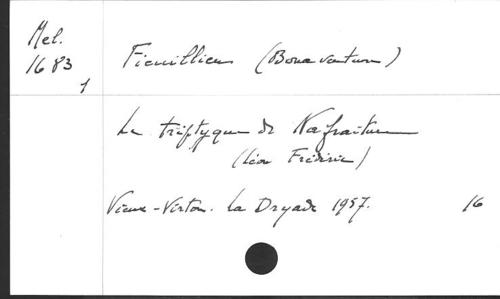 Mel.
1683
1
Fieuillien (Bonaventure)
Le triptyque de Nafraiture
(Léon Frédéric)
Vieux-Virton. La Dryade 1957. 16